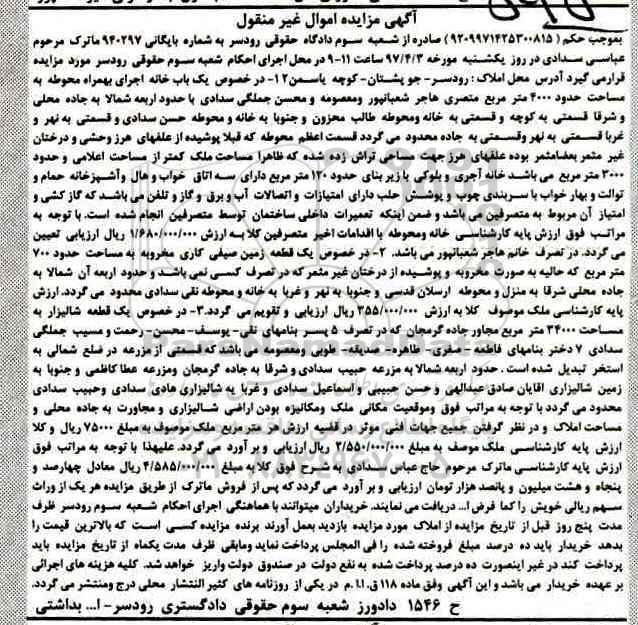 آگهی مزایده اموال غیر منقول
بموجب حکم (۹۲۰۹۹۷۱۴۲۵۳۰۰۸۱۵) صادره از شعبه سوم دادگاه حقوقی رودسر به شماره بایگانی ۹۴۰۲۹۷ ماترک مرحوم
عباسی سدادی در روز یکشنبه مورخه ۹۷/۴/۳ ساعت ۱۱-۹ در محل اجرای احکام شعبه سوم حقوقی رودسر مورد مزایده
قرارمی گیرد آدرس محل املاک : رودسر- جو پشتان- کوچه یاسمن۱۲- در خصوص یک باب خانه اجرای بهمراه محوطه به
مساحت حدود ۴۰۰۰ متر مربع متصری هاجر شعبانپور ومعصومه و محسن جملگی سدادی با حدود اربعه شمالا به جاده محلی
و شرقا قسمتی به کوچه و قسمتی به خانه ومحوطه طالب محزون و جنوبا به خانه و محوطه حسن سدادی و قسمتی به نهر و
غربا قسمتی به نهر وقسمتی به جاده محدود می گردد قسمت اعظم محوطه که قبلا پوشیده از علفهای هرز وحشی و درختان
غیر مثمر بعضامثمر بوده علفهای هرز جهت مساحی تراش زده شده که ظاهرا مساحت ملک کمتر از مساحت اعلامی و حدود
۳۰۰۰ متر مربع می باشد خانه آجری و بلوکی با زیر بنای حدود ۱۲۰ متر مربع دارای سه اتاق خواب و هال وآشپزخانه حمام و
توالت و بهار خواب با سربندی چوب و پوشش حلب دارای امتیازات و اتصالات آب و برق و گاز و تلفن می باشد که گاز کشی و
امتیاز آن مربوط به متصرفین می باشد و ضمن اینکه تعمیرات داخلی ساختمان توسط متصرفین انجام شده است. با توجه به
مراتب فوق ارزش پایه کارشناسی خانه ومحوطه با اقدامات اخیر متصرفین کلا به ارزش ۱/۶۸۰/۰۰۰/۰۰۰ ریال ارزیابی تعیین
می گردد. در تصرف خانم هاجر شعبانپور می باشد. ۲- در خصوص یک قطعه زمین صیفی کاری مخروبه به مساحت حدود ۷۰۰
متر مربع که حالیه به صورت مخروبه و پوشیده از درختان غیر مثمر که در تصرف کسی نمی باشد و حدود اربعه آن شمالا به
جاده محلی شرقا به منزل و محوطه ارسلان قدسی و جنوبا به نهر و غربا به خانه و محوطه نقی سدادی محدود می گردد. ارزش
پایه کارشناسی ملک موصوف کلا به ارزش ۳۵۵/۰۰۰/۰۰۰ ریال ارزیابی و تقویم می گردد.۳- در خصوص یک قطعه شالیزار به
مساحت ۳۴۰۰۰ متر مربع مجاور جاده گرمجان که در تصرف ۵ پسر بنامهای نقی- یوسف- محسن- رحمت و مسیب جملگی
سدادی ۷ دختر بنامهای فاطمه - صغری- طاهره- صدیقه- طوبی ومعصومه می باشد که قسمتی از مزرعه در ضلع شمالی به
استخر تبدیل شده است . حدود اربعه شمالا به مزرعه حبیب سدادی و شرقا به جاده گرمجان ومزرعه عطا کاظمی و جنوبا به
زمین شالیزاری اقایان صادق عبدالهی و حسن حبیبی و اسماعیل سدادی و غربا به شالیزاری هادی سدادی وحبیب سدادی
محدود می گردد با توجه به مراتب فوق وموقعیت مکانی ملک ومکانیزه بودن اراضی شالیزاری و مجاورت به جاده محلی و
مساحت املاک و در نظر گرفتن جمیع جهات فنی موثر در قضیه ارزش هر متر مربع ملک موصوف به مبلغ ۷۵۰۰۰ ریال و کلا
ارزش پایه کارشناسی ملک موصف به مبلغ ۲/۵۵۰/۰۰۰/۰۰۰ ریال ارزیابی و بر آورد می گردد. علیهذا با توجه به مراتب فوق
ارزش پایه کارشناسی ماترک مرحوم حاج عباس سدادی به شرح فوق کلا به مبلغ ۴/۵۸۵/۰۰۰/۰۰۰ ریال معادل چهارصد و
پنجاه و هشت میلیون و پانصد هزار تومان ارزیابی و بر آورد می گردد که پس از فروش ماترک از طریق مزایده هر یک از وراث
سهم ریالی خویش را کما فرض ا... دریافت می نمایند. خریداران میتوانند با هماهنگی اجرای احکام شعبه سوم رودسر ظرف
مدت پنج روز قبل از تاریخ مزایده از املاک مورد مزایده بازدید بعمل آورند برنده مزایده کسی است که بالاترین قیمت را
بدهد خریدار باید ده درصد مبلغ فروخته شده را فی المجلس پرداخت نماید ومابقی ظرف مدت یکماه از تاریخ مزایده باید
پرداخت کند در غیر اینصورت ده درصد پرداخت شده به نفع دولت در صندوق دولت واریز خواهد شد. کلیه هزینه های اجرائی
بر عهده خریدار می باشد و این آگهی وفق ماده ۱۱۸ ق.ا.ا.م در یکی از روزنامه های کثیر النتشار محلی درج ومنتشر می گردد.
ح ۱۵۴۶ دادورز شعبه سوم حقوقی دادگستری رودسر- ا... بداشتی